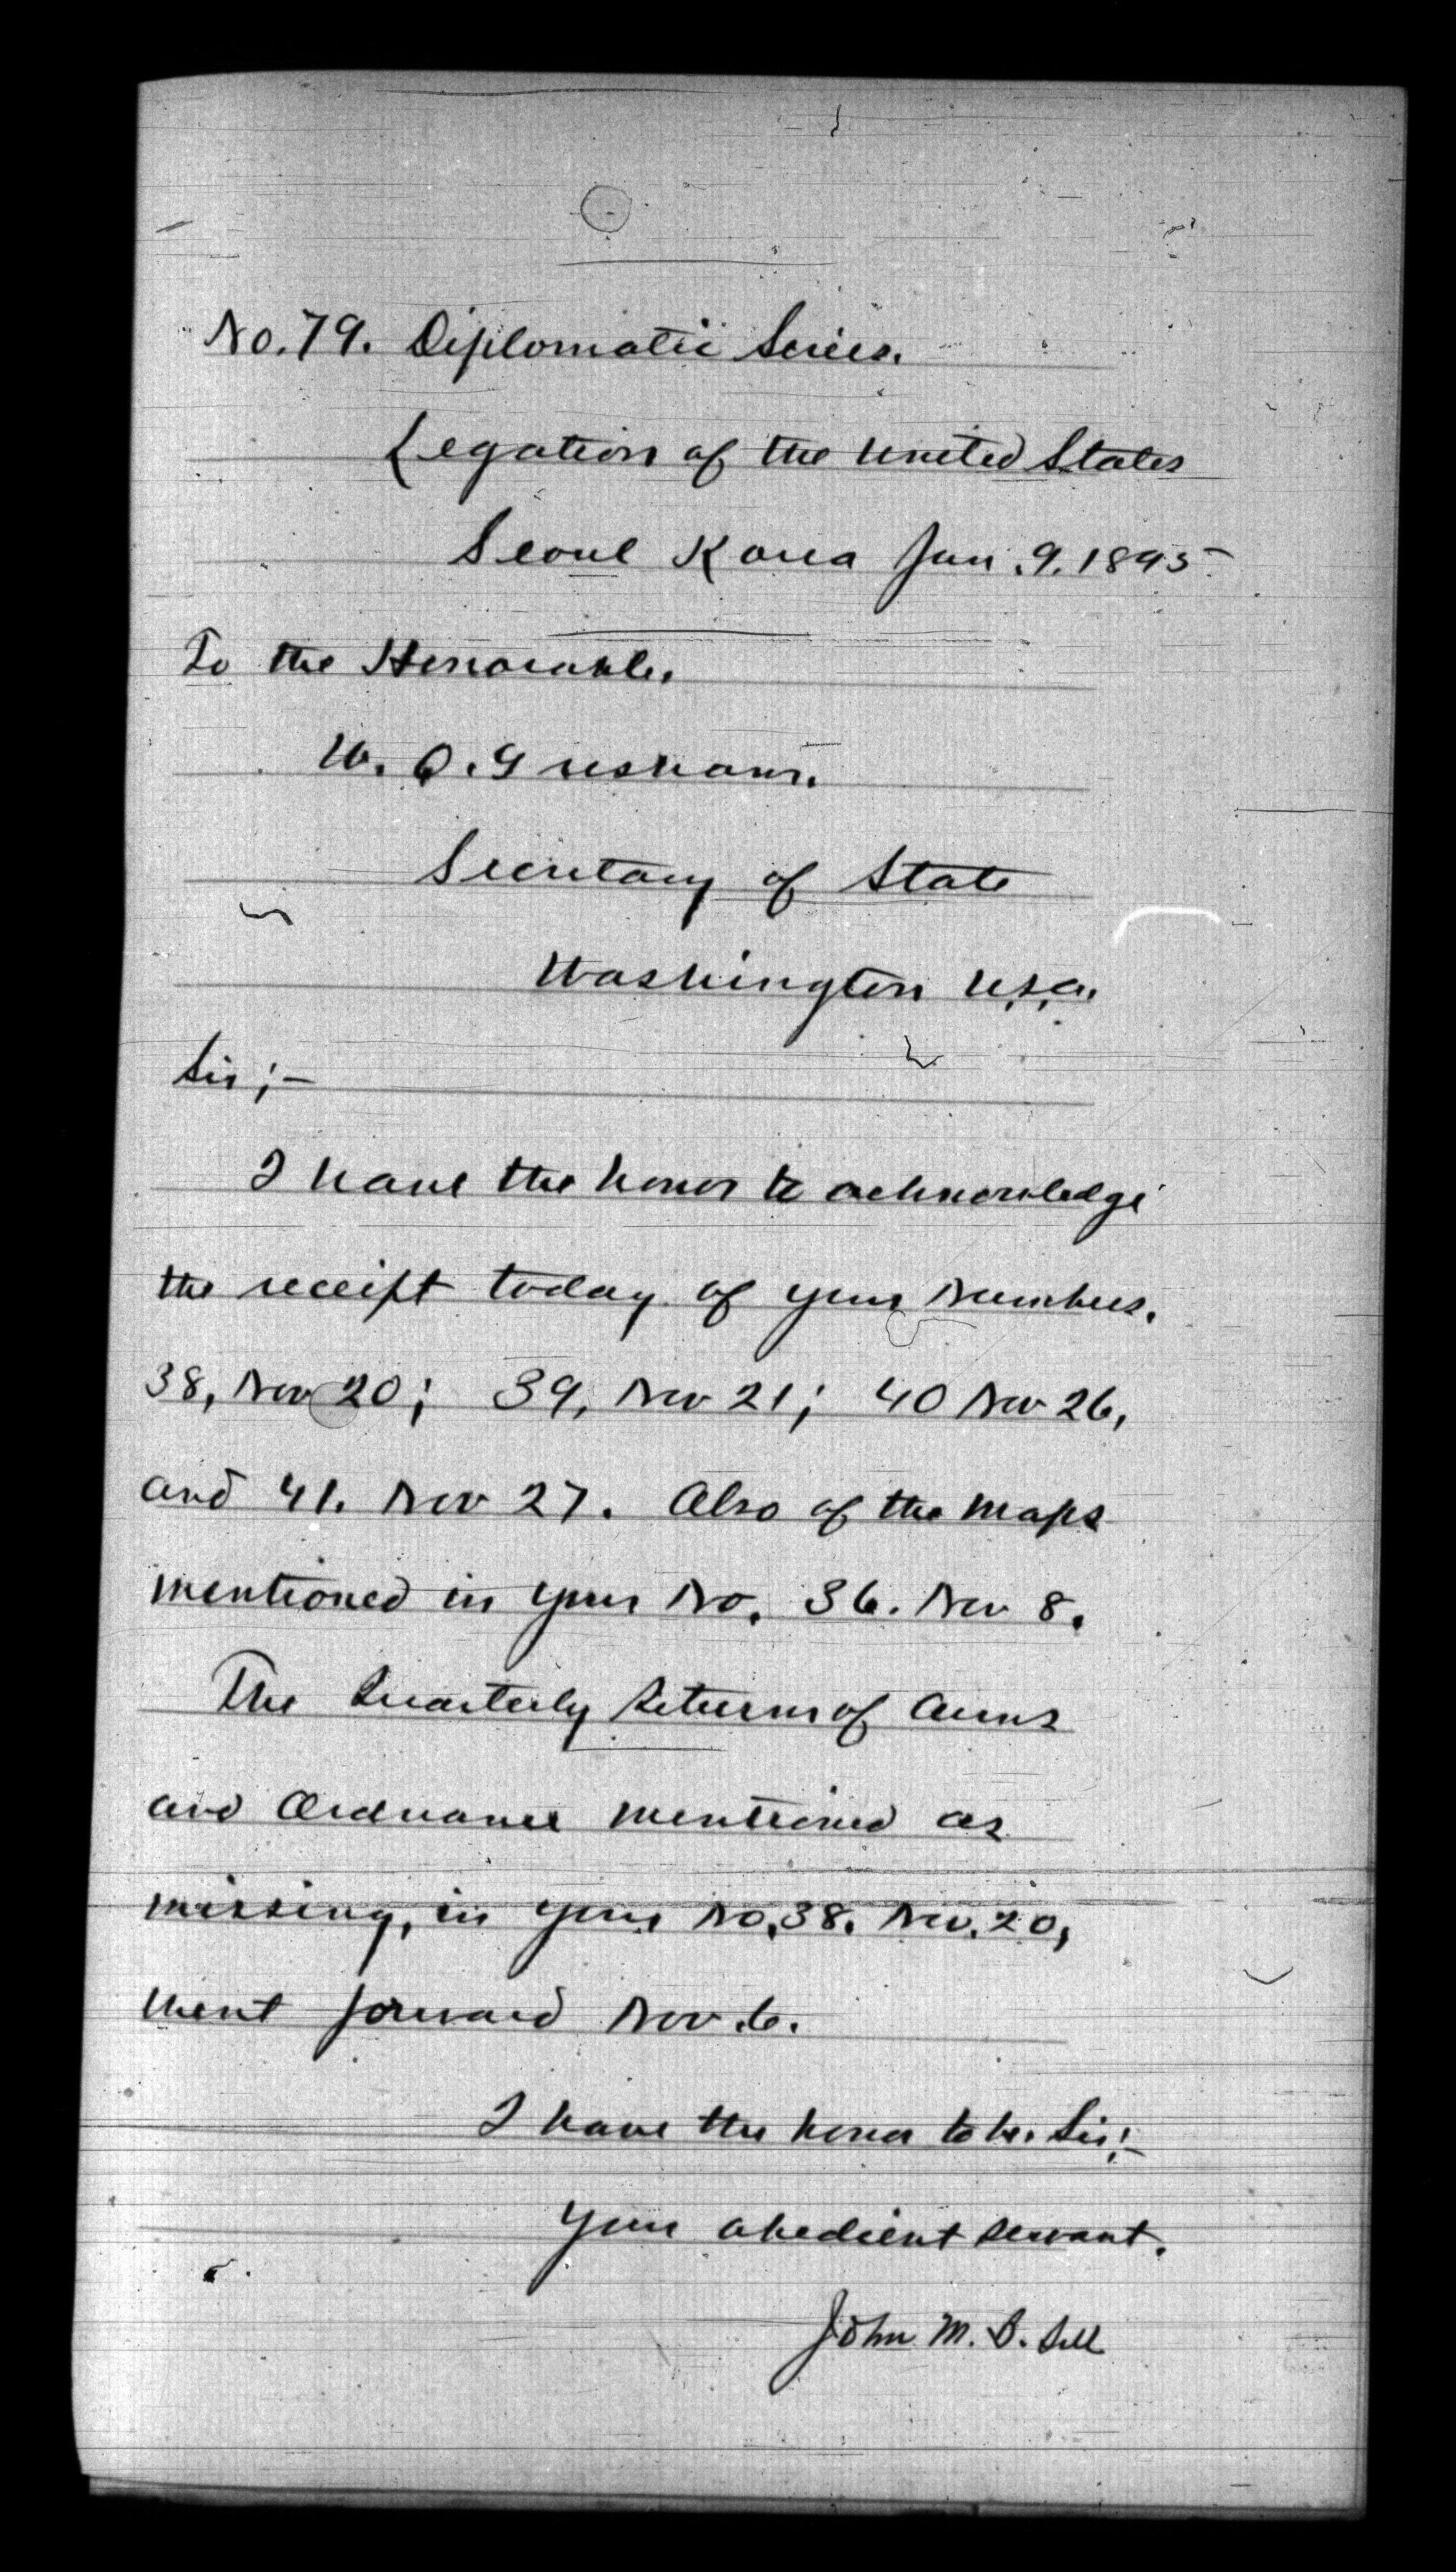 No. 79. Diplomatic Series.
Legation of the United States
Seoul Korea Jan. 9. 1895
To the Honorable.
W. Q. Gresham.
Secretary of State
Washington U.S.A.
Sir;—
I have the honor to acknowledge
the receipt today of your Numbers.
38, Nov 20; 39, Nov 21; 40 Nov 26,
and 41. Nov 27. Also of the maps
mentioned in your No. 36. Nov 8.
The Quarterly Returns of Arms
and Ordnance mentioned as
missing, in your No. 38. Nov. 20,
went forward Nov. 6.
I have the honor to be. Sir;—
Your obedient servant.
John M. B. Sill